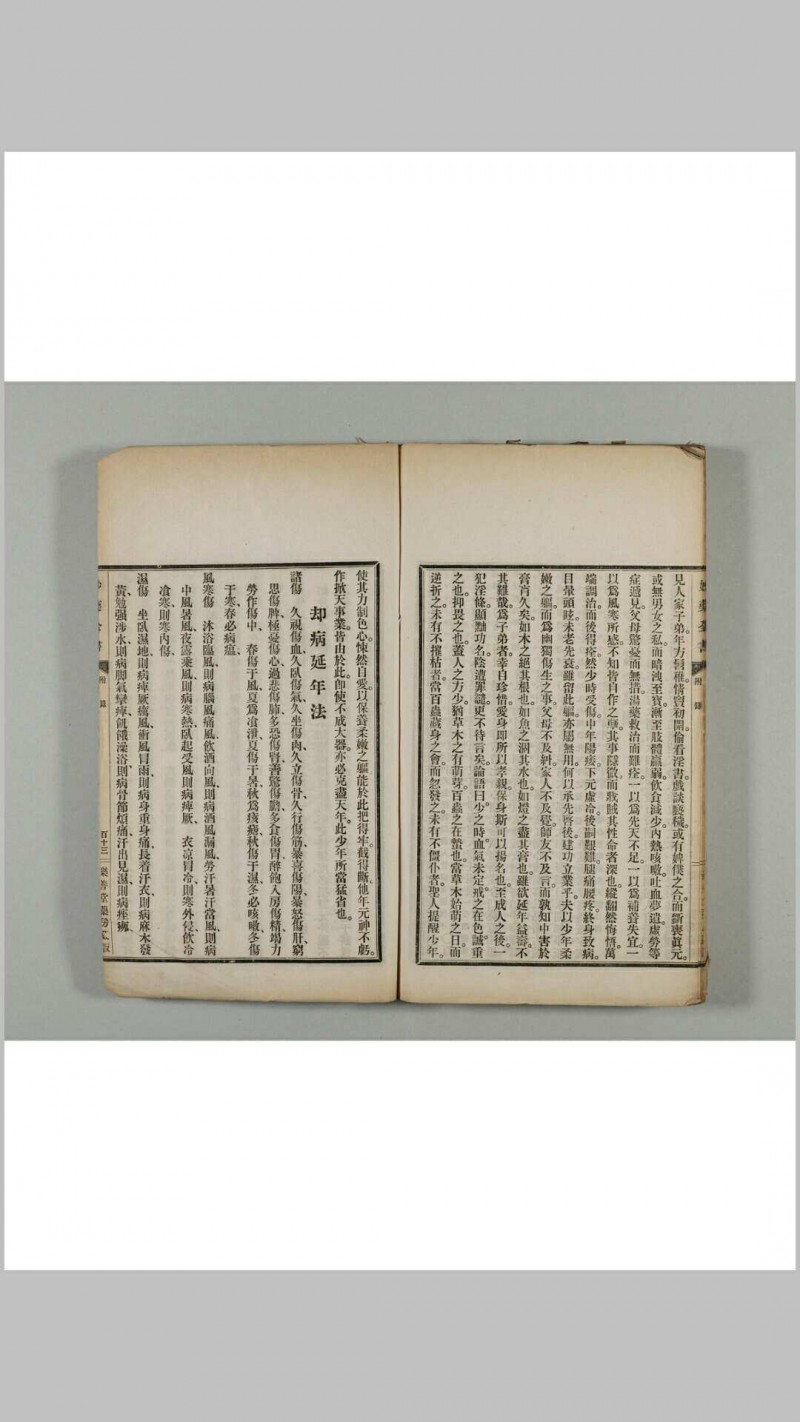 見人家子弟。年方髫稚。情竇初開。偷看淫書。戲談婬穢。或有婢僕之合。而斷喪眞元。
或無男女之私。而暗洩至寶。漸至肢體羸弱。飲食減少。內熱咳嗽。吐血夢遺。虛勞等
症遞見。父母驚憂而無措。湯藥救治而難痊。一以爲先天不足。一以爲補養失宜。一
以爲風寒所感。不知皆自作之孽。其事隱微。而戕賊其性命者深也。縱翻然悔悟。萬
端調治。而後得痊。然少時受傷。中年陽痿。下元虛冷。後嗣艱難。腿痛腰疼。終身致病。
目暈頭眩。未老先衰。雖留此軀。亦屬無用。何以承先啓後。建功立業乎。夫以少年柔
嫩之軀。而爲幽獨傷生之事。父母不及糾。家人不及覺。師友不及言。而孰知中害於
膏肓久矣。如木之絕其根也。如魚之涸其水也。如燈之盡其膏也。雖欲延年益壽。不
其難哉。爲子弟者。幸自珍惜愛身。即所以孝親。保身斯可以揚名也。至成人之後。一
犯淫條。顯黜功名。陰遭罪譴。更不待言矣。論語曰。少之時。血氣未定。戒之在色。誠重
之也。抑畏之也。蓋人之方少。猶草木之有萌芽。百蟲之在蟄也。當草木始萌之日。而
逆折之。未有不摧枯者。當百蟲藏身之會。而忽發之。未有不僵仆者。聖人提醒少年。
附錄
使其力制色心。悚然自愛。以保養柔嫩之軀。能於此把得牢。截得斷。他年元神不虧。
作掀天事業。皆由於此。卽使不成大器。亦必克盡天年。此少年所當猛省也。
却病延年法
諸傷　久視傷血、久臥傷氣、久坐傷肉、久立傷骨、久行傷筋、暴喜傷陽、暴怒傷肝、窮
思傷脾、極憂傷心、過悲傷肺、多恐傷腎、善驚傷膽、多食傷胃、醉飽入房傷精、竭力
勞作傷中、　春傷于風、夏爲飧泄、夏傷于暑、秋爲痎瘧、秋傷于濕、冬必咳嗽、冬傷
于寒、春必病瘟、
風寒傷　沐浴臨風、則病腦風痛風、飲酒向風、則病酒風漏風、勞汗暑汗當風、則病
中風暑風、夜露乘風、則病寒熱、臥起受風、則病痺厥、　衣涼冒冷、則寒外侵、飲冷
飧寒、則寒內傷、
濕傷　坐臥濕地、則病痺厥癘風、衝風冒雨、則病身重身痛、長着汗衣、則病麻木發
黃、勉强涉水、則病脚氣攣痺、飢餓澡浴、則病骨節煩痛、汗出見濕、則病痤疿、
附錄
百十三
樂善堂藥房